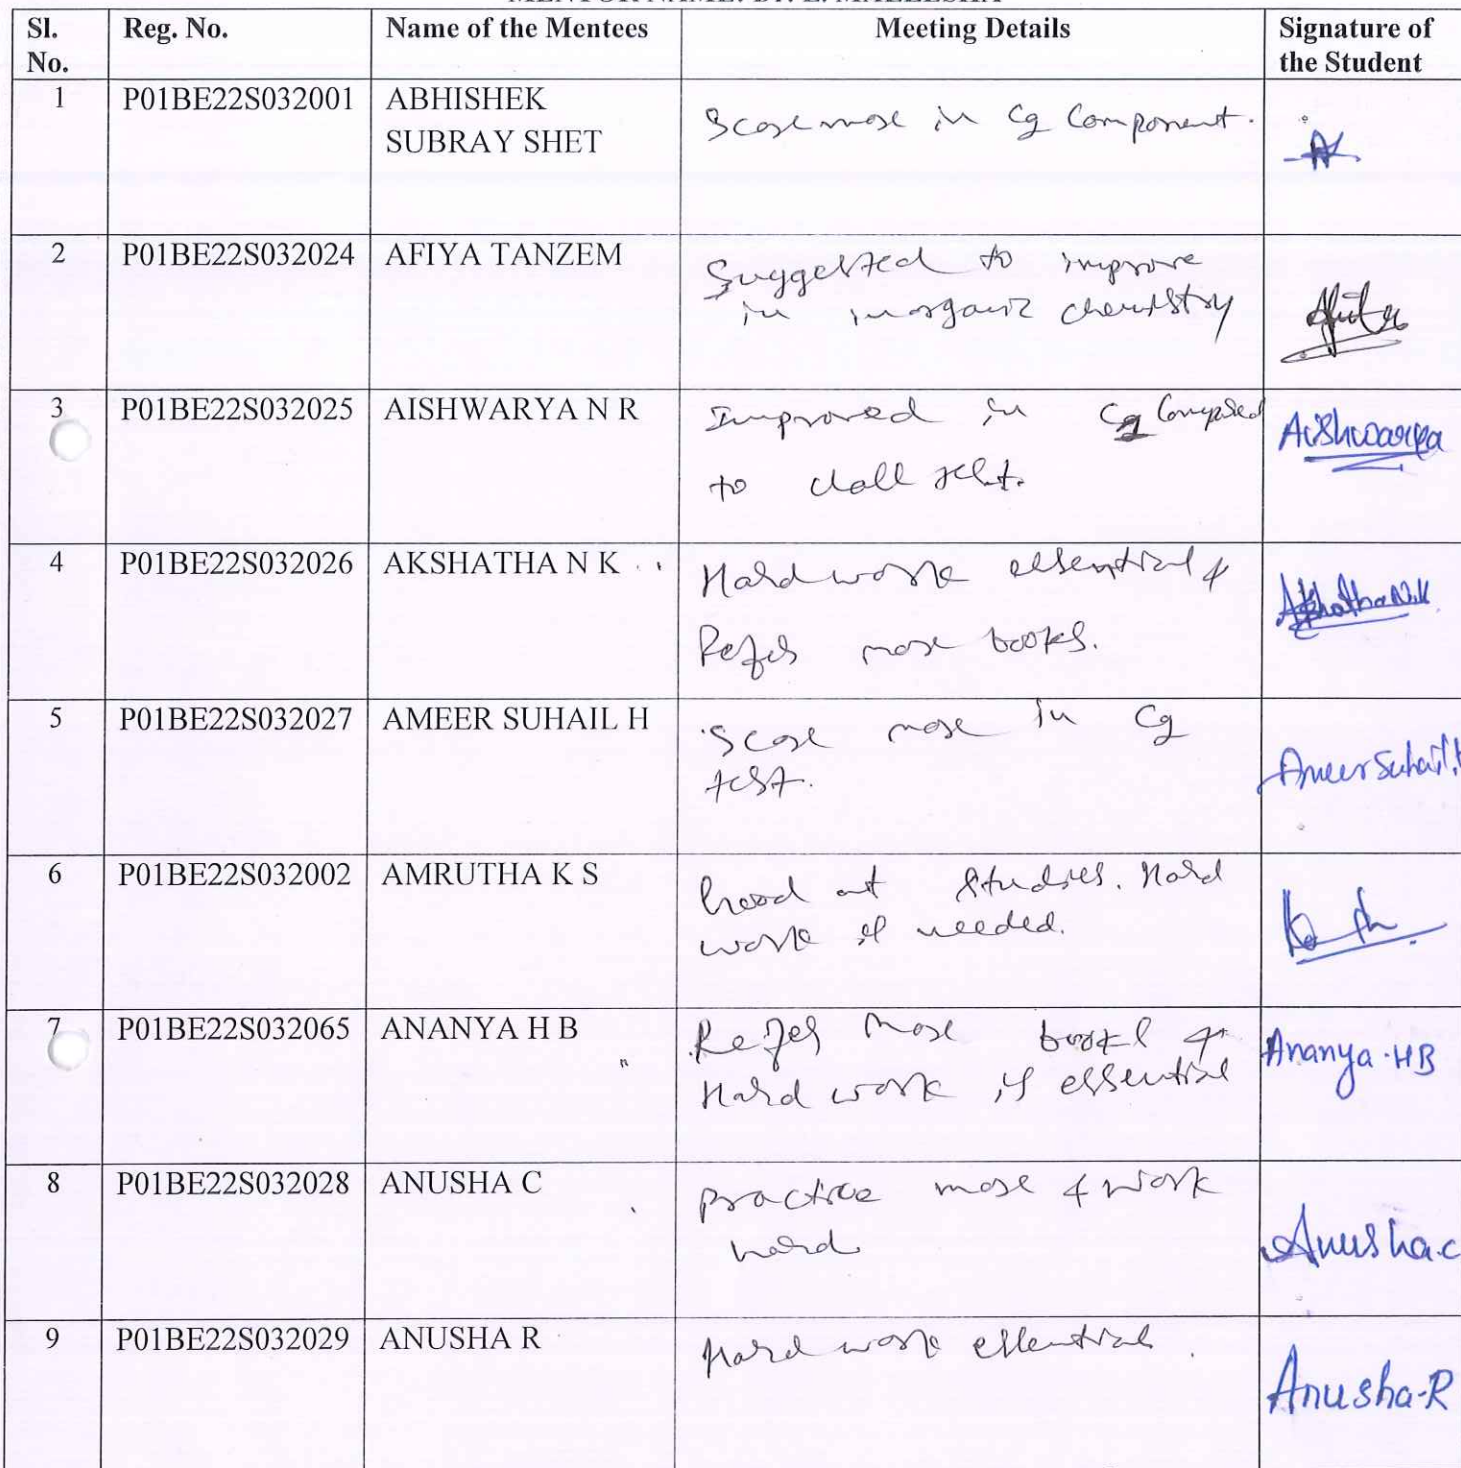 Sl. No.
Reg. No.
Name of the Mentees
Meeting Details
Signature of the Student
1
P01BE22S032001
ABHISHEK
SUBRAY SHET
Score more in Cg Component.
2
P01BE22S032024
AFIYA TANZEM
Suggested to improve
in inorganic chemistry
3
P01BE22S032025
AISHWARYA N R
Improved in Cg Compared
to class test.
Aishwarya
4
P01BE22S032026
AKSHATHA N K
Hard work essential &
Refer more books.
Akshatha N.K
5
P01BE22S032027
AMEER SUHAIL H
Score more in Cg
test.
Ameer Suhail.H
6
P01BE22S032002
AMRUTHA K S
Good at studies. Hard
work is needed.
7
P01BE22S032065
ANANYA H B
Refer more books &
Hard work is essential
Ananya.HB
8
P01BE22S032028
ANUSHA C
practice more & work
hard
Anusha.c
9
P01BE22S032029
ANUSHA R
Hard work essential.
Anusha.R